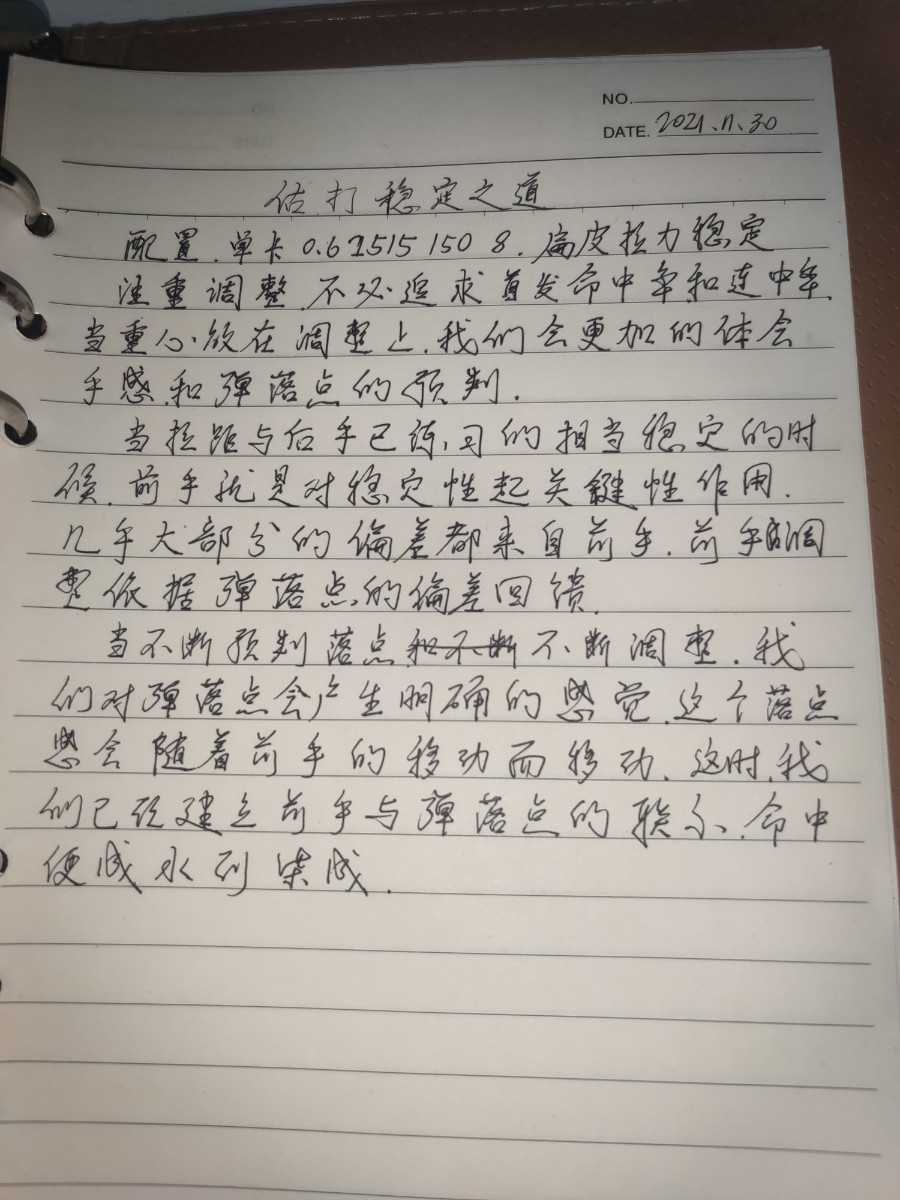 NO.
DATE. 2021.11.30
估打稳定之道
配置.单卡0.61515 150 8.扁皮拉力稳定
注重调整.不必追求首发命中率和连中率.
当重心放在调整上.我们会更加的体会
手感和弹落点的预判.
当拉距与后手已练习的相当稳定的时
候.前手就是对稳定性起关键性作用.
几乎大部分的偏差都来自前手.前手的调
整依据弹落点的偏差回馈.
当不断预判落点和不断不断调整.我
们对弹落点会产生明确的感觉.这个落点
感会随着前手的移动而移动.这时.我
们已经建立前手与弹落点的联系.命中
便成水到渠成.